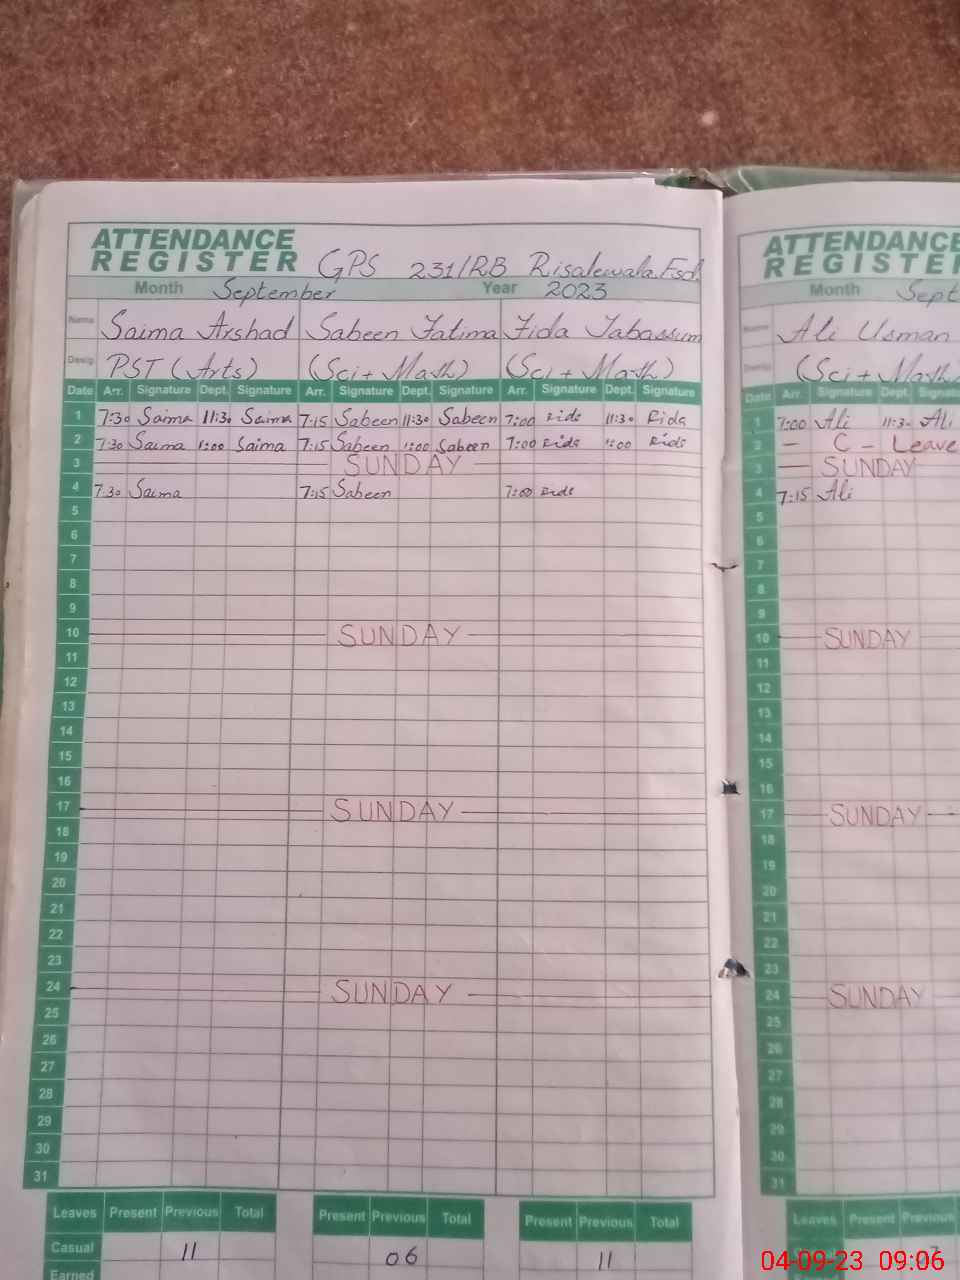 ATTENDANCE
REGISTER GPS 231/RB Risalewala Fsd.
Month September Year 2023
Name Saima Arshad Sabeen Fatima Fida Tabassum
Desig PST (Arts) (Sci + Math) (Sci + Math)
Date Arr. Signature Dept. Signature Arr. Signature Dept. Signature Arr. Signature Dept. Signature
1 7:30 Saima 11:30 Saima 7:15 Sabeen 11:30 Sabeen 7:00 Fida 11:30 Fida
2 7:30 Saima 1:00 Saima 7:15 Sabeen 1:00 Sabeen 7:00 Fida 1:00 Fida
3 SUNDAY
4 7:30 Saima 7:15 Sabeen 7:00 Fida
5
6
7
8
9
10 SUNDAY
11
12
13
14
15
16
17 SUNDAY
18
19
20
21
22
23
24 SUNDAY
25
26
27
28
29
30
31
Leaves Present Previous Total Present Previous Total Present Previous Total
Casual 11 06 11
Earned
ATTENDANCE
REGISTER
Month Sept
Name Ali Usman
(Sci + Math
Date Arr. Signature Dept. Signa
1 7:00 Ali 11:3- Ali
2 — C - Leave
3 SUNDAY
4 7:15 Ali
5
6
7
8
9
10 SUNDAY
11
12
13
14
15
16
17 SUNDAY
18
19
20
21
22
23
24 SUNDAY
25
26
27
28
29
30
31
Leaves Present Previous
04-09-23 09:06